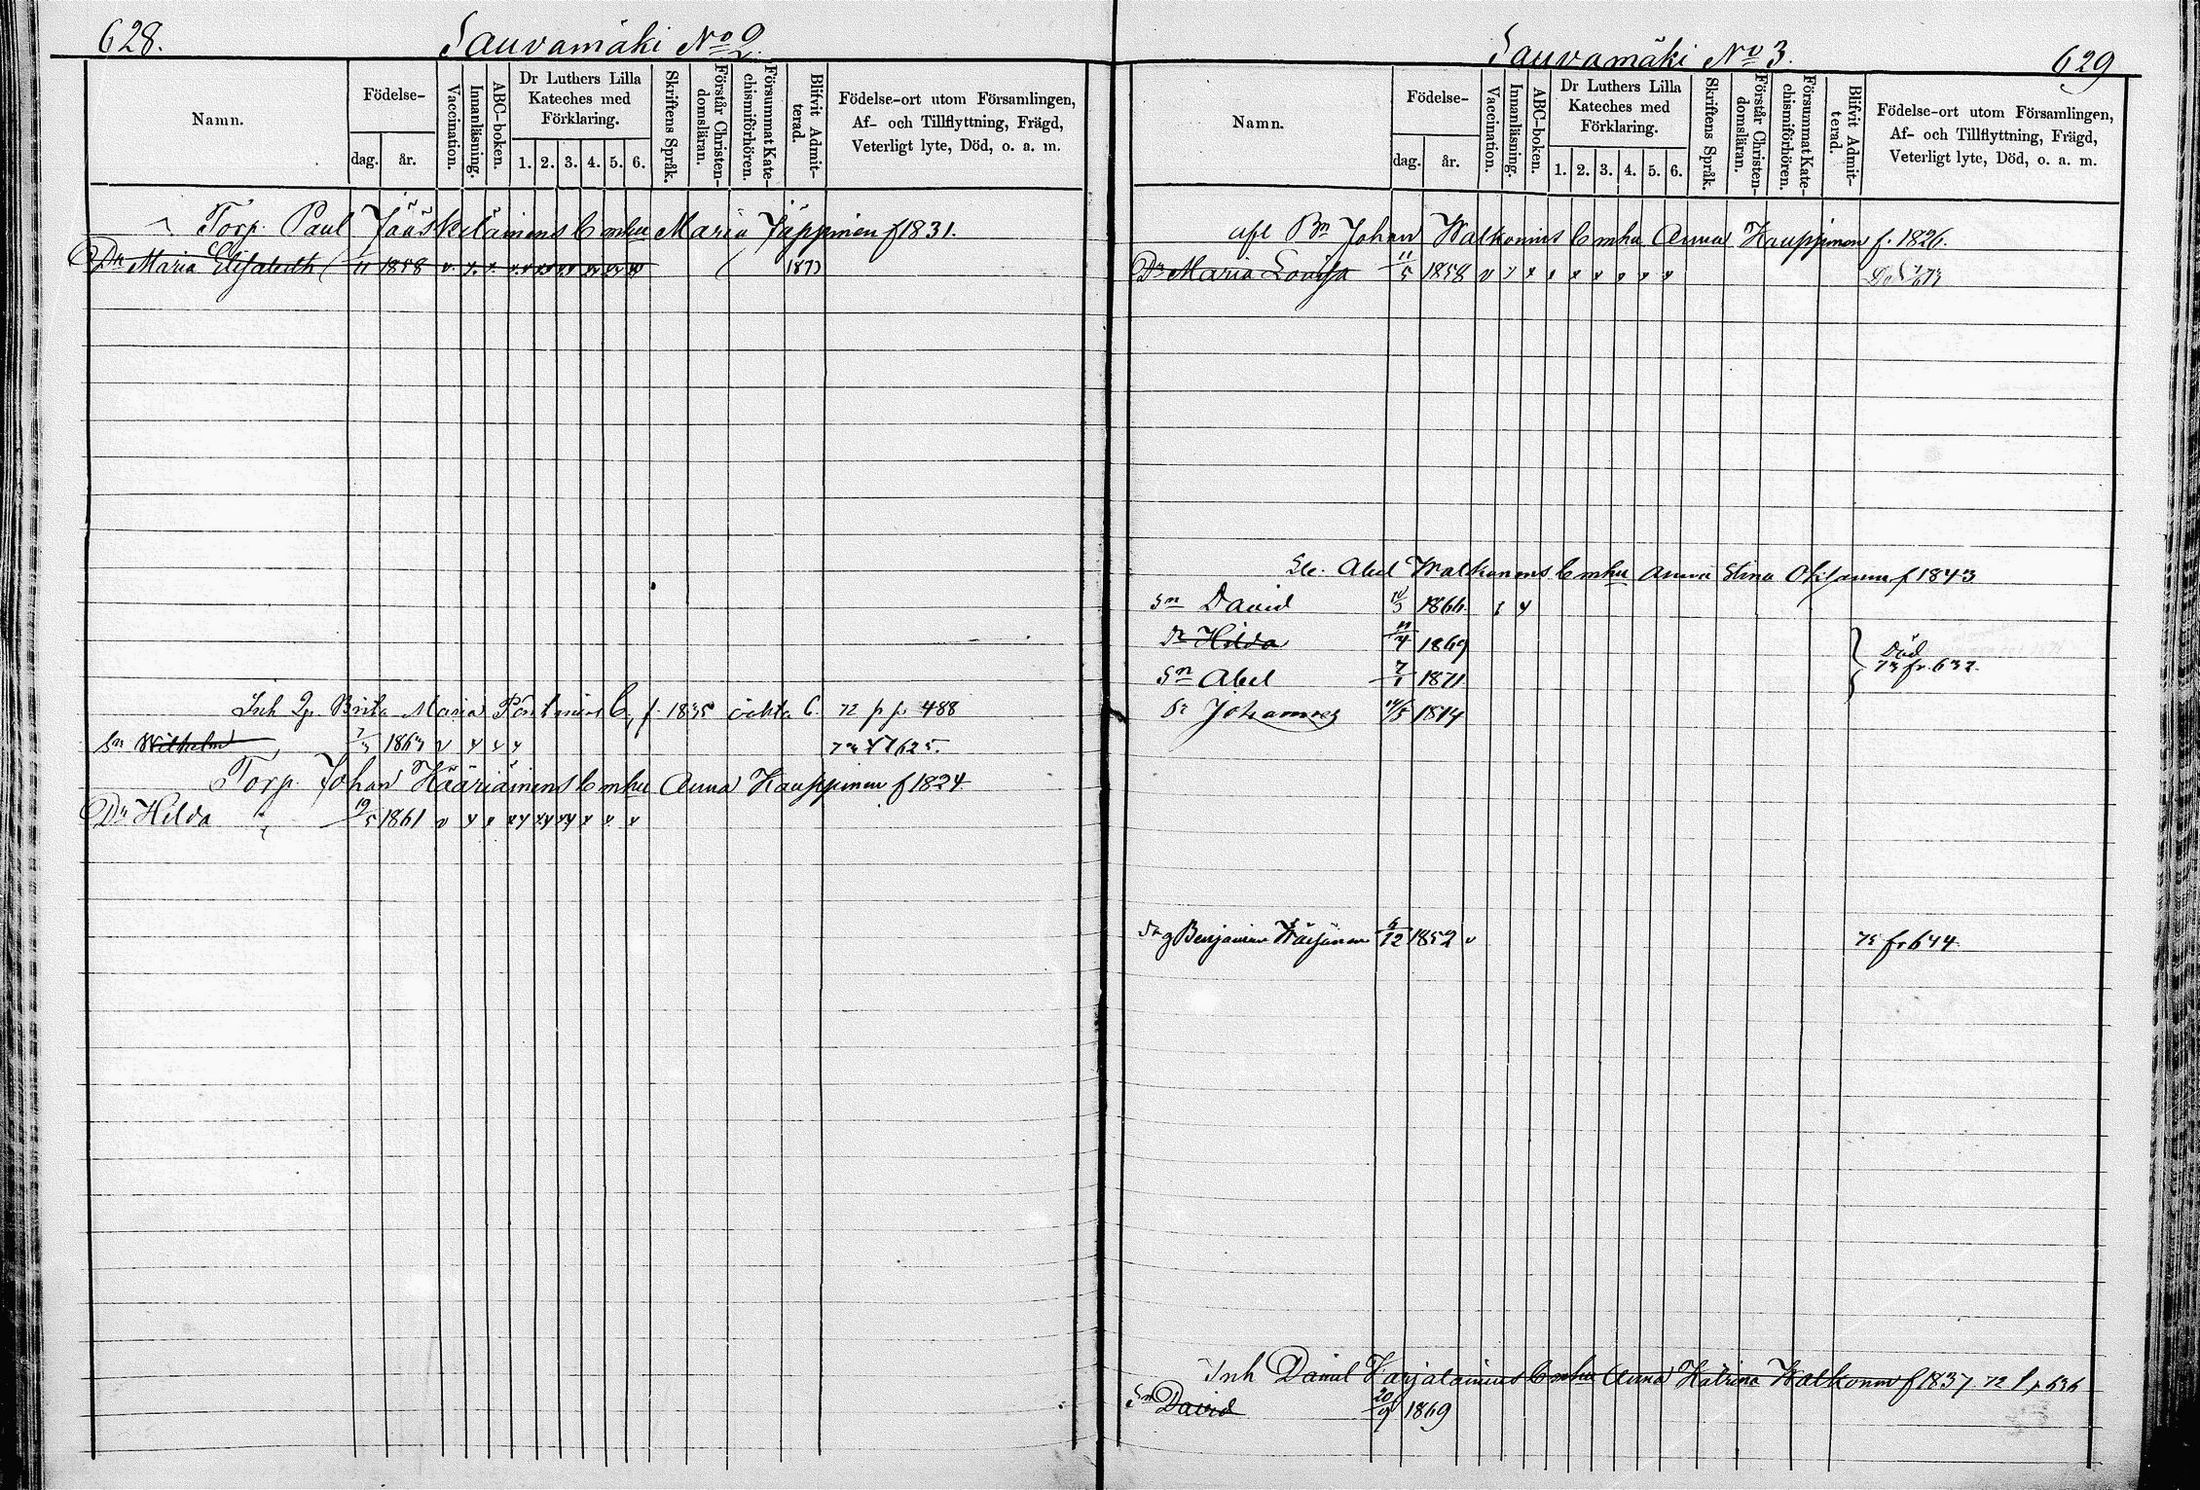 628.
Sauvamäki No 2.
Namn.
Födelse-
dag.
år.
Vaccination.
Innanläsning.
ABC-boken.
Dr Luthers Lilla
Kateches med
Förklaring.
1. 2. 3. 4. 5. 6.
Skriftens Språk.
Förstår Christen-
domsläran.
Försummat Kate-
chismiförhören.
Blifvit Admit-
terad.
Födelse-ort utom Församlingen,
Af- och Tillflyttning, Frägd,
Veterligt lyte, Död, o. a. m.
Torp. Paul Jääskeläinens Maria Jäppinen f 1831.
Dr Maria Elisabeth 11 1858 1873
Inh Brita Maria f. 1835 72 488
Sn Wilhelm 1863 625.
Torp. Johan Hääriäinens Anna Kauppinen f 1824
Dr Hilda 19/5 1861
Sauvamäki No 3.
629
Namn.
Födelse-
dag.
år.
Vaccination.
Innanläsning.
ABC-boken.
Dr Luthers Lilla
Kateches med
Förklaring.
1. 2. 3. 4. 5. 6.
Skriftens Språk.
Förstår Christen-
domsläran.
Försummat Kate-
chismiförhören.
Blifvit Admit-
terad.
Födelse-ort utom Församlingen,
Af- och Tillflyttning, Frägd,
Veterligt lyte, Död, o. a. m.
afl Bn Johan Walkonins Anna Kauppinen f. 1826.
Dr Maria Lovisa 11/5 1858
Abel Walkonens Anna Stina f 1843
Sn David 1866
Dr Hilda 11/4 1869 Död
Sn Abel 7/1 1871 73 fr 632.
Johannes 1874
Drg Benjamin 6/12 1852 75 fr 644.
Inh Daniel Karjalainens Anna Katrina Walkonen f 1837. 72 636
Sn David 20/9 1869